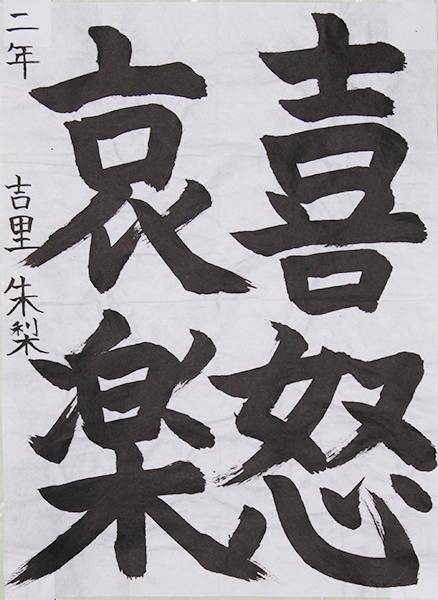 喜怒
哀楽
二年 吉里朱梨